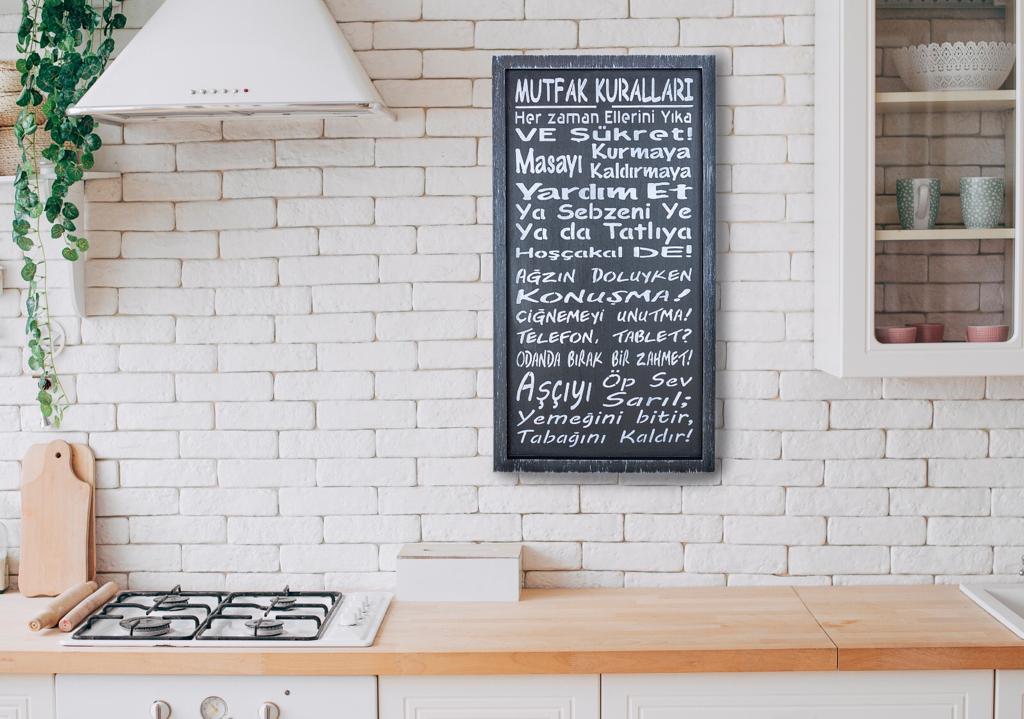 MUTFAK KURALLARI
Her zaman Ellerini Yıka
VE Şükret!
Masayı Kurmaya
Kaldırmaya
Yardım Et
Ya Sebzeni Ye
Ya da Tatlıya
Hoşçakal DE!
AĞZIN DOLUYKEN
KONUŞMA!
ÇİĞNEMEYİ UNUTMA!
TELEFON, TABLET?
ODANDA BIRAK BİR ZAHMET!
Aşçıyı Öp Sev
Sarıl;
Yemeğini bitir,
Tabağını Kaldır!